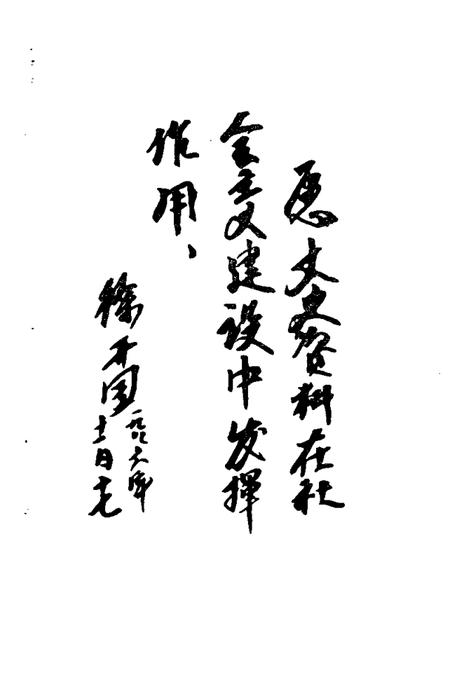 愿文史资料在社
会主义建设中发挥
作用、
徐
国
一九八六年
十二月